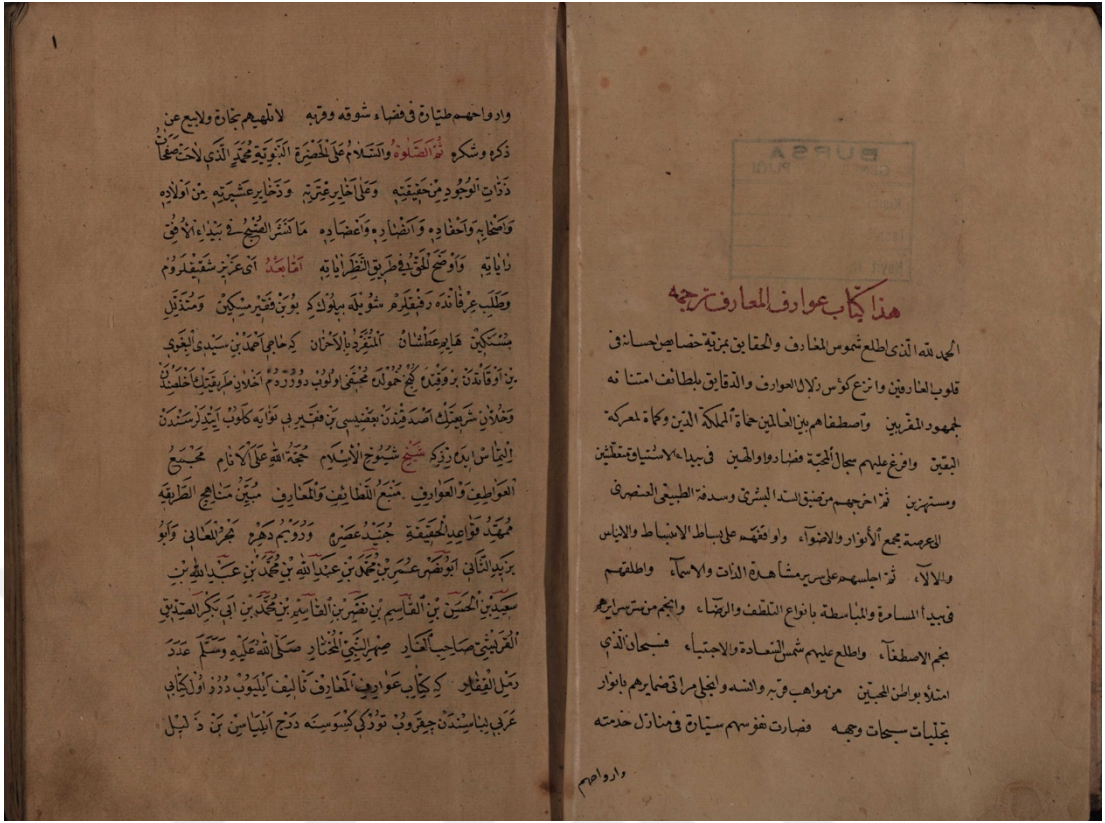 BURSA
هذا كتاب عوارف المعارف ترجمه
الحمد لله الذي اطلع شموس المعارف والحقايق بمزية خصايص احسانه في
قلوب العارفين واترع كؤس زلال العوارف والدقايق بلطائف امتنانه
لجمهور المقربين واصطفاهم بين العالمين حماة المملكة الدين وكماة لمعركة
اليقين وافرغ عليهم سجال المحبة فصاروا والهين في بيداء الاشتياق متعطشين
ومستهزين ثم اخرجهم من ضيق السد البشرى وسدفة الطبيعى العنصرى
الى عرصة مجمع الأنوار والاضواء واوقفهم على بساط الانبساط والايناس
والالاء ثم اجلسهم على سرير مشاهدة الذات والاسماء واطلقهم
في بيدأ المسامرة والمباسطة بانواع التلطف والرضاء وانجم من سرايرهم
نجم الاصطفاء واطلع عليهم شمس السعادة والاجتباء فسبحان الذي
امتلاء بواطن المحبين من مواهب قربه وانسه وانجلى مرائى ضمايرهم بانوار
تجليات سبحات وجهه فصارت نفوسهم سيارة في منازل خدمته
وارواحهم
١
وارواحهم طيارة في فضاء شوقه وقربه لا تلهيهم تجارة ولا بيع عن
ذكره وشكره ثم الصلوة والسلام على الحضرة النبوية محمد الذي لاحت صفحات
ذذات الوجود من حقيقته وعلى اخاير عترته وذخاير عشيرته من اولاده
واصحابه واحفاده وانصاره واعضاده ما نشر الصبح في بيداء الأفق
راياته واوضح الحق في طريق النظر اياته اما بعد اى عزيز شفيقلروم
وطلب عرفانده رفيقلرم شويله بيلوك كه بو بن فقير مسكين ومتذلل
مستكين هايم عطشان المتفرد بالاحزان كه حاجى احمد بن سيدى البغوى
بن اوقاتدن بر وقتده كنج خمولده مختفى اولوب دوروردم اخلان طريقتك اخلصندن
وخلان شريعتك اصدقندن بعضيسى بن فقير بى نوايه كلوب ايتديلر سندن
التماس ايده رز كه شيخ شيوخ الاسلام حجة الله على الانام مجمع
العواطف والعوارف منبع اللطائف والمعارف مبين مناهج الطريقه
ممهد قواعد الحقيقة جنيد عصره ورويم دهره بحر المعانى وابو
يزيد الثانى ابو نصر عمر بن محمد بن عبد الله بن محمد بن عبد الله بن
سعيد بن الحسين بن القاسم بن نصر بن القاسم بن محمد بن ابى بكر الصديق
القريشى صاحب الغار صهر النبي المختار صلى الله عليه وسلم عدد
رمل القفار كه كتاب عوارف المعارف تأليف ايليوب درر اول كتابى
عربى لباسندن جيقروب تورك كسوسنه درج ايلياسن بن ذليل